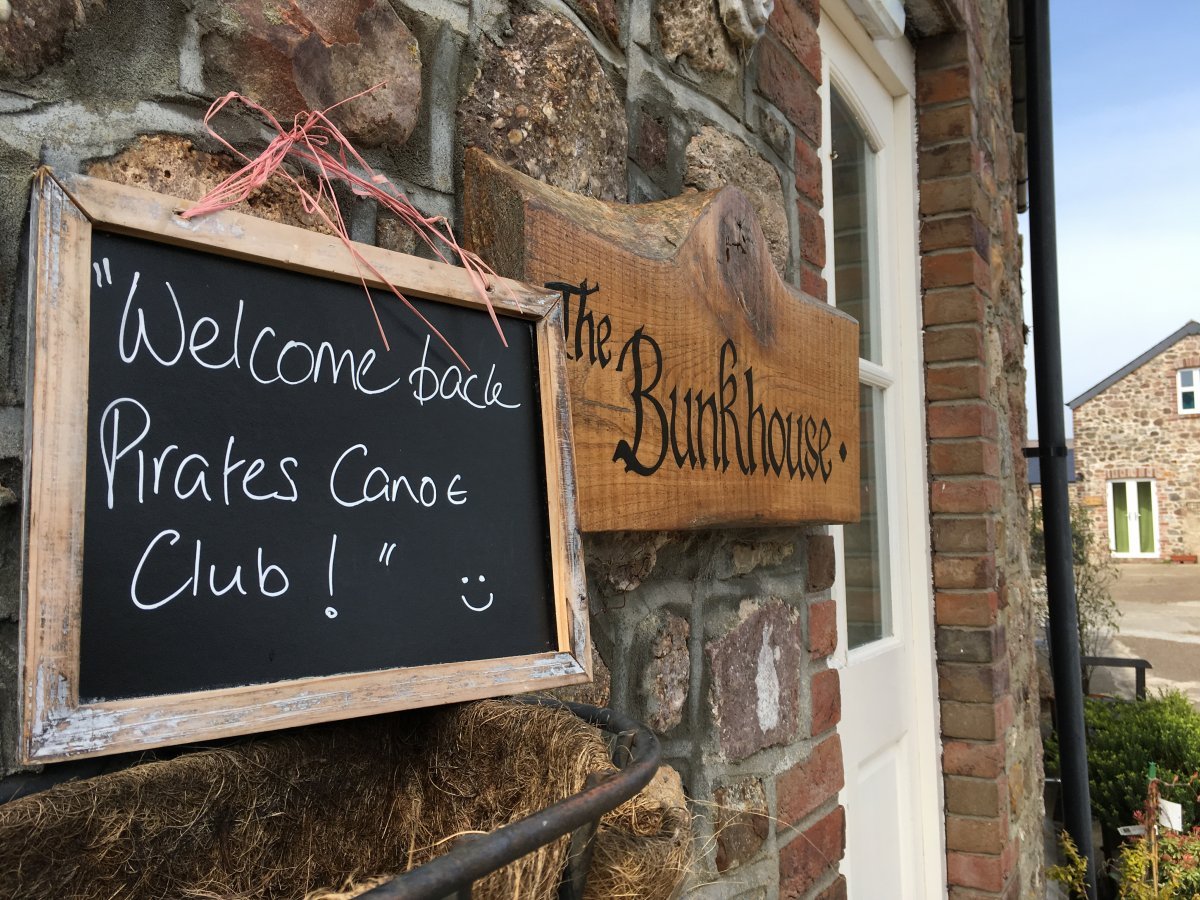 "Welcome back
Pirates Canoe
Club!" :)
The
Bunkhouse.